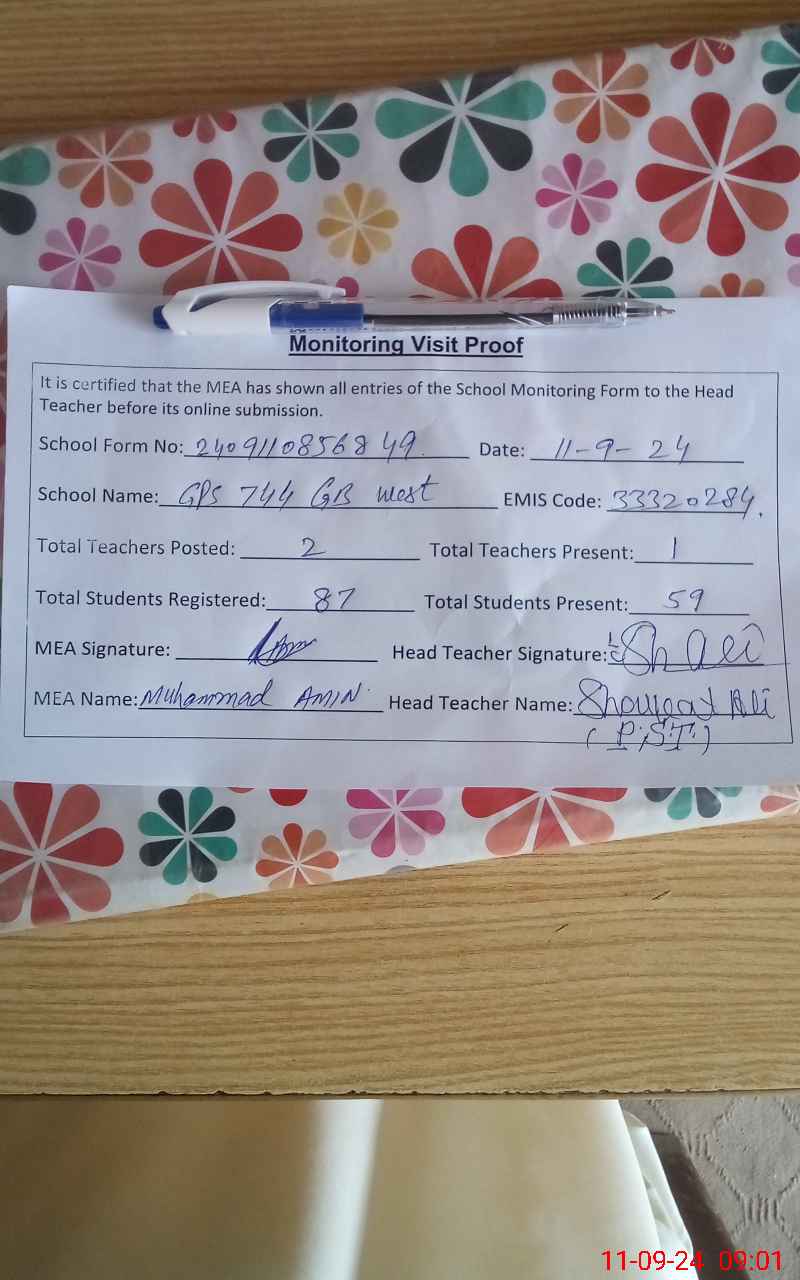 Monitoring Visit Proof
It is certified that the MEA has shown all entries of the School Monitoring Form to the Head
Teacher before its online submission.
School Form No: 2409110856849 Date: 11-9-24
School Name: GPS 744 GB west EMIS Code: 33320284
Total Teachers Posted: 2 Total Teachers Present: 1
Total Students Registered: 87 Total Students Present: 59
MEA Signature: Head Teacher Signature: Sh Ali
MEA Name: Muhammad AMIN Head Teacher Name: Shouqat Ali
(P.S.T.)
11-09-24 09:01